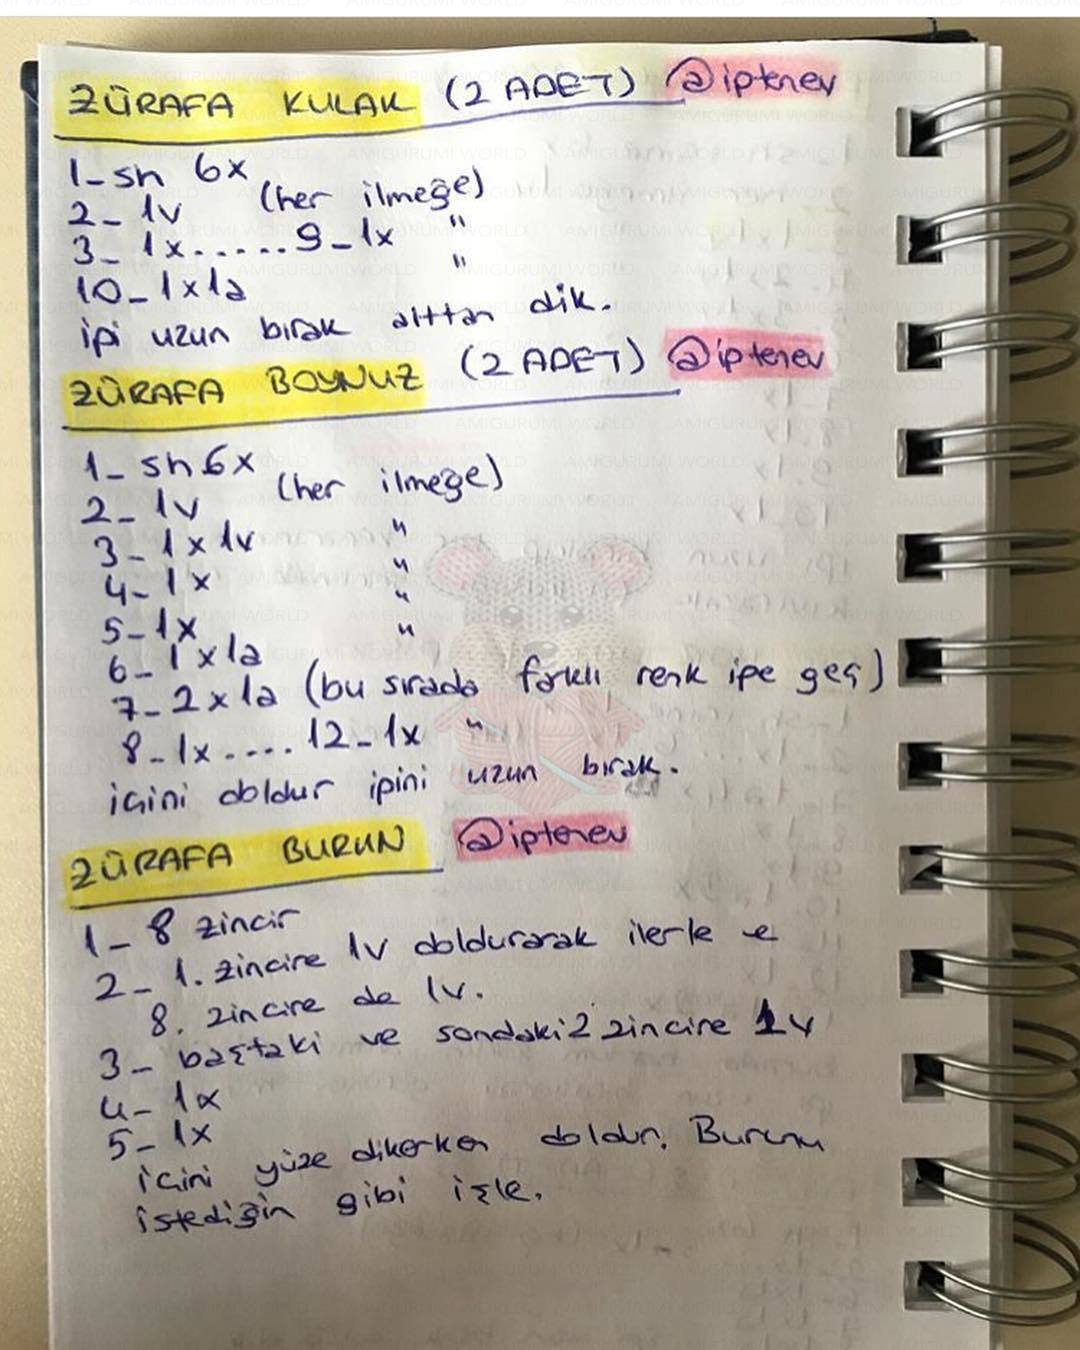 ZÜRAFA KULAK (2 ADET) @iptenev
1- sh 6x
2- 1v (her ilmeğe)
3- 1x.....9-1x "
10- 1x1a "
ipi uzun bırak alttan dik.
ZÜRAFA BOYNUZ (2 ADET) @iptenev
1- sh 6x
2- 1v (her ilmeğe)
3- 1x1v "
4- 1x "
5- 1x "
6- 1x1a "
7- 2x1a (bu sırada farklı renk ipe geç)
8- 1x.... 12-1x "
içini doldur ipini uzun bırak.
ZÜRAFA BURUN @iptenev
1- 8 zincir
2- 1. zincire 1v doldurarak ilerle e
8. zincire de 1v.
3- baştaki ve sondaki 2 zincire 1v
4- 1x
5- 1x
içini yüze dikerken doldur. Burunu
istediğin gibi işle.
AMIGURUMI WORLD